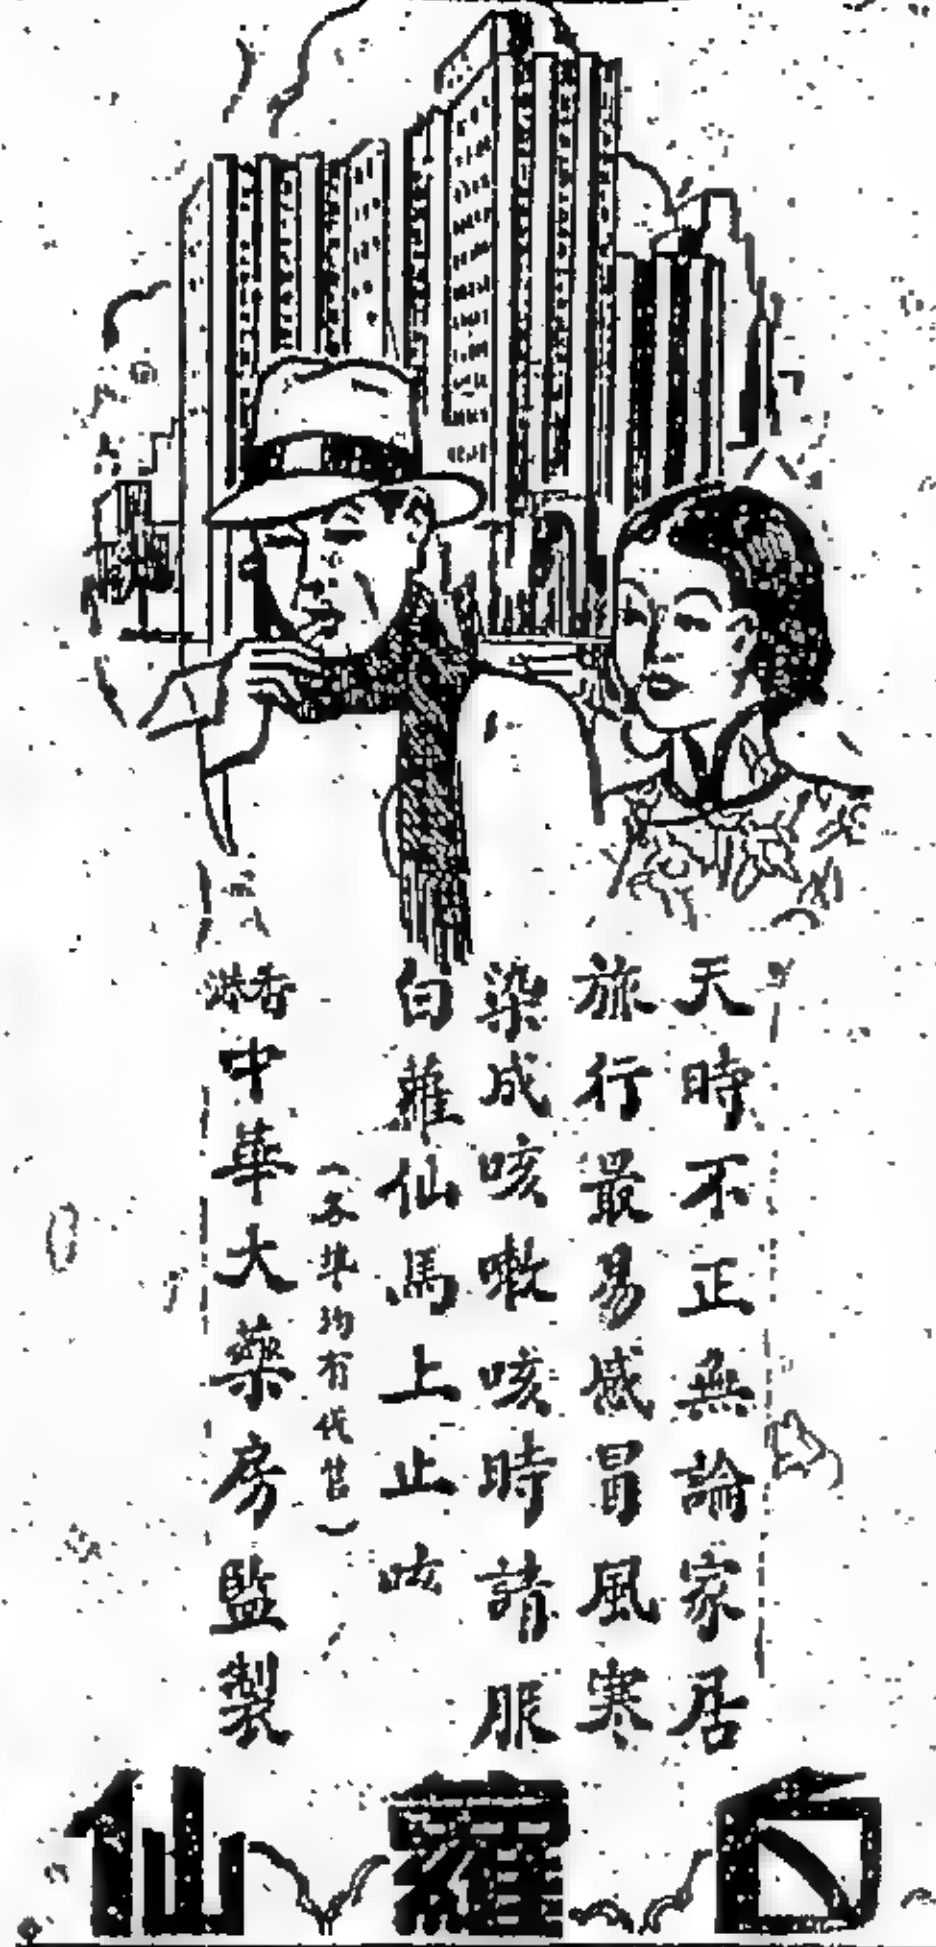 天時不正無論家居
旅行最易感冒風寒
染成咳咳嗽咳時請服
白蘿仙馬上止咳
(各埠均有代售)
香港中華大藥房監製
白蘿仙